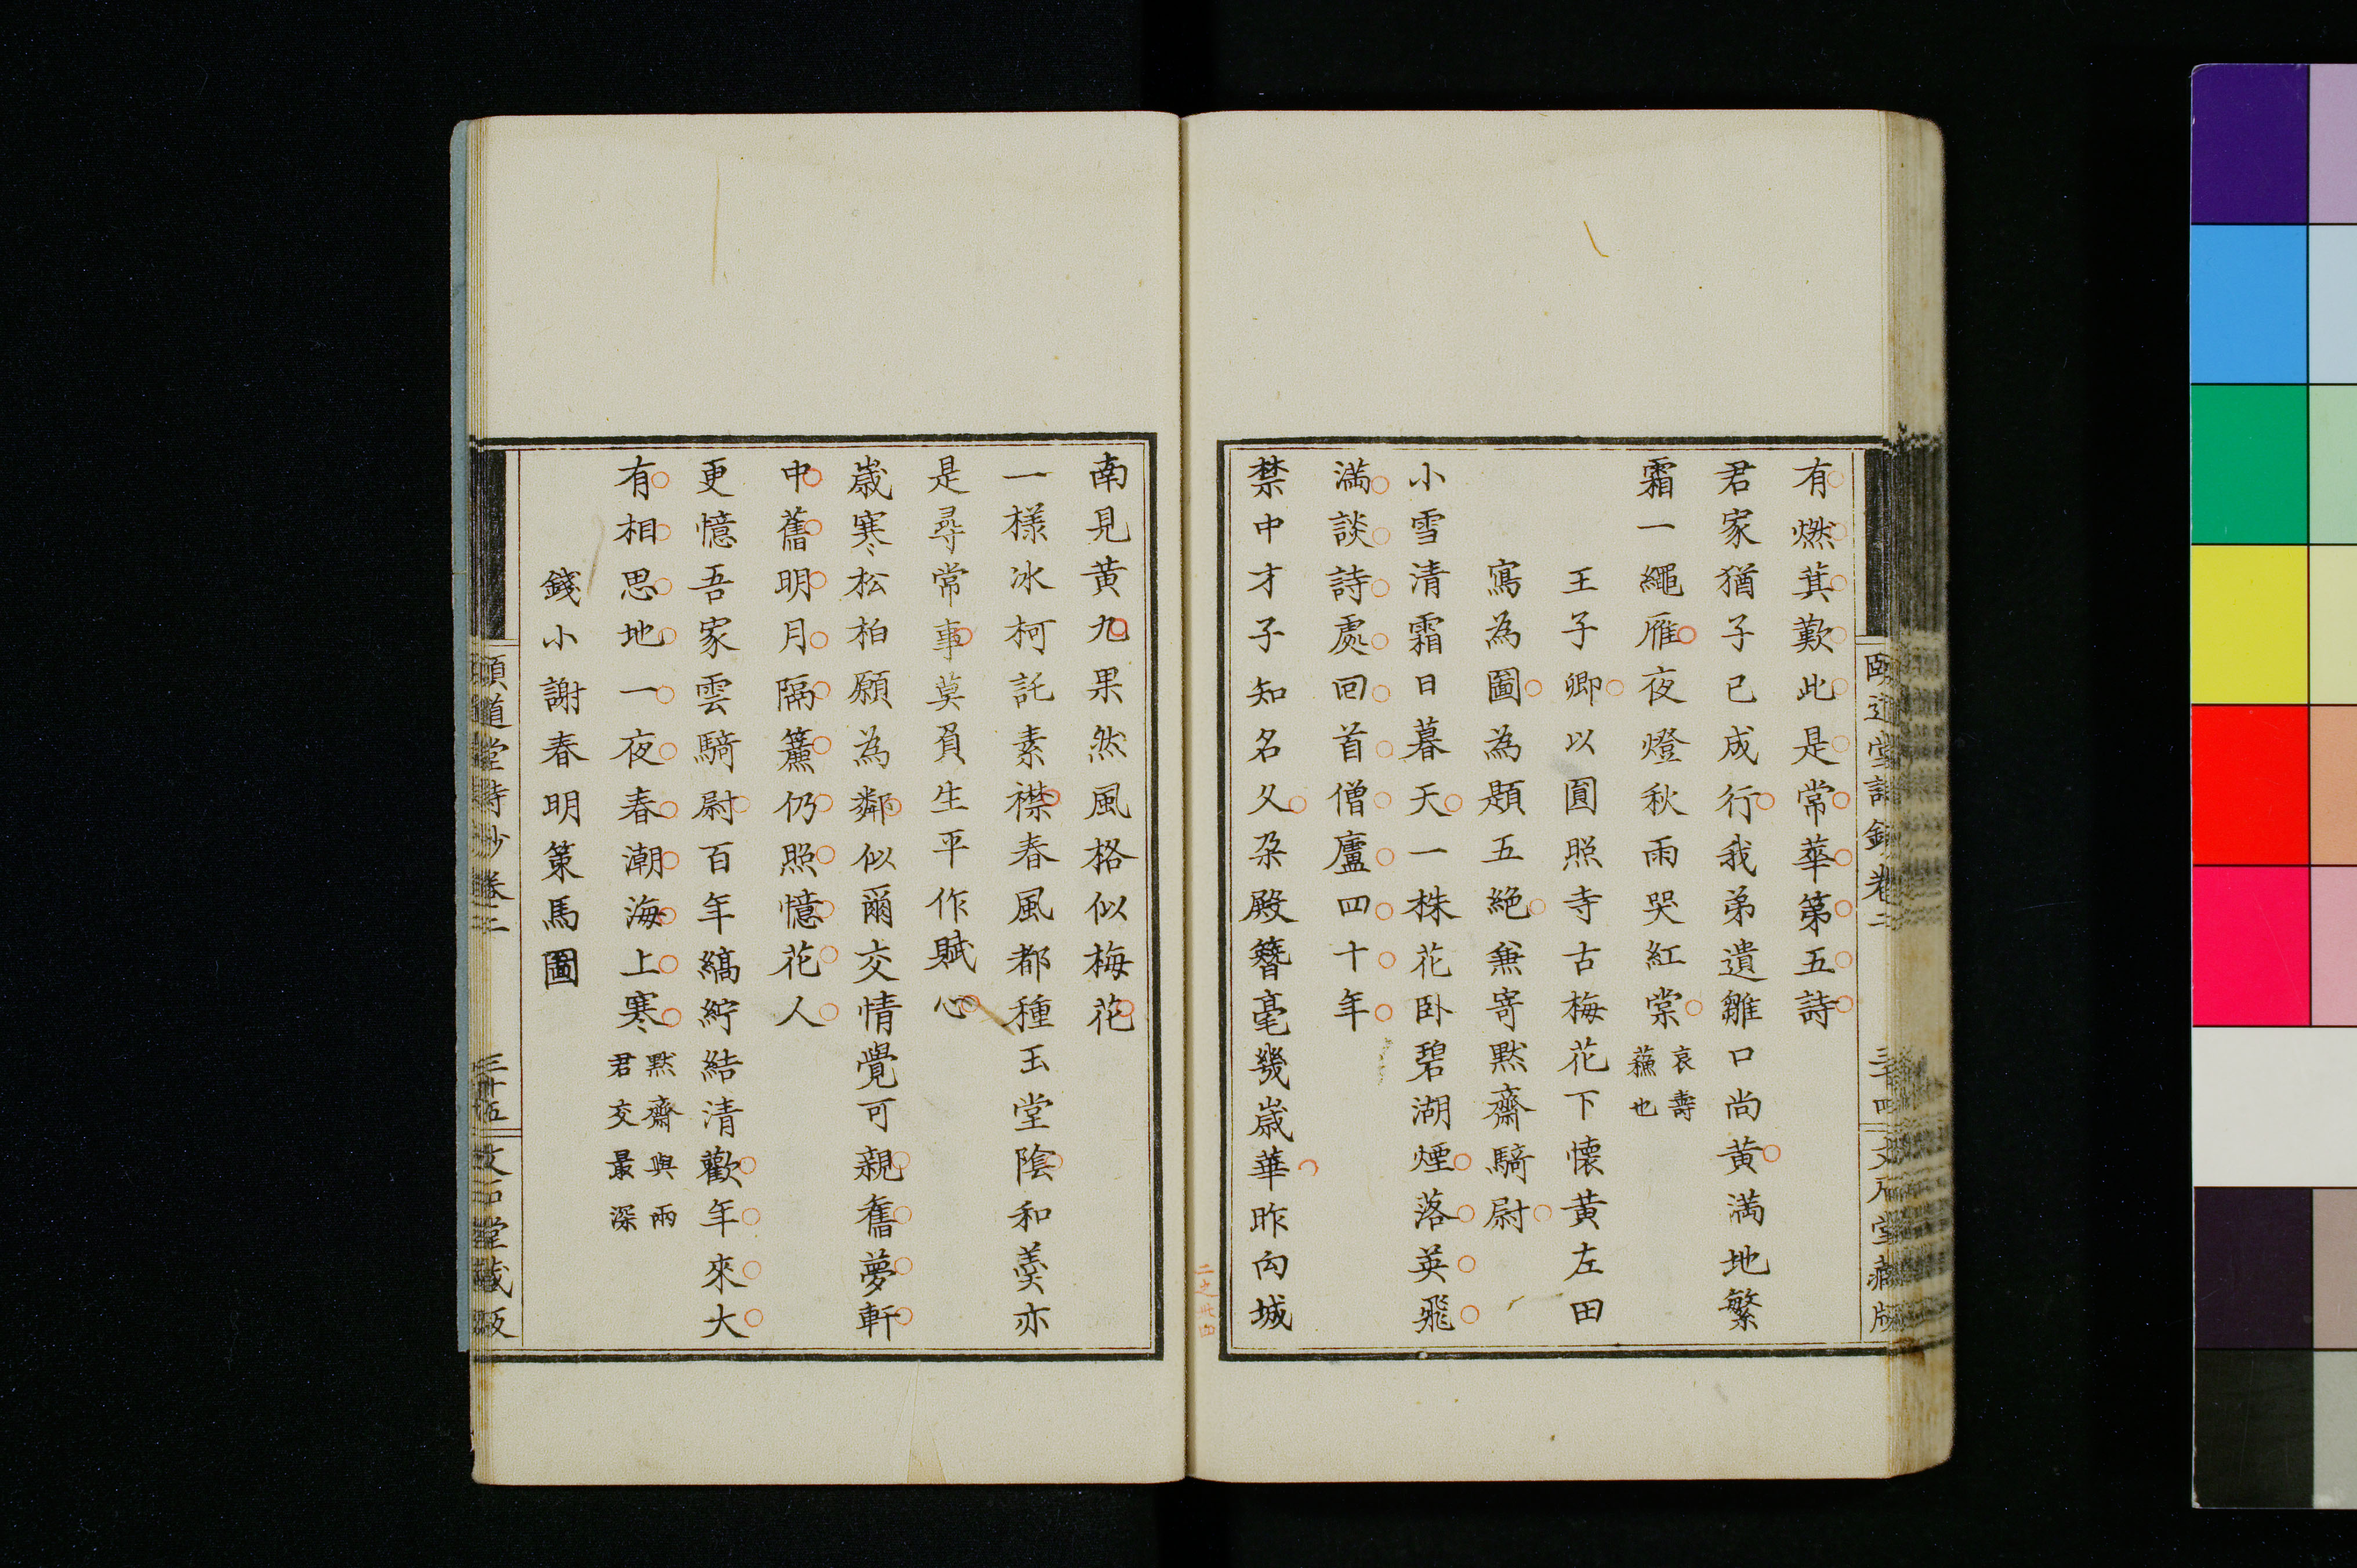 有燃萁歎此是常華第五詩
君家猶子已成行我弟遺雛口尚黃滿地繁
霜一繩雁夜燈秋雨哭紅棠哀壽
蘓也
王子卿以圓照寺古梅花下懷黃左田
寫為圖為題五絕兼寄默齋騎尉
小雪清霜日暮天一株花卧碧湖煙落英飛
滿談詩處回首僧廬四十年
禁中才子知名久朶殿簪毫幾歲華昨向城
南見黃九果然風格似梅花
一樣冰柯託素襟春風都種玉堂陰和羹亦
是尋常事莫負生平作賦心
歲寒松柏願為鄰似爾交情覺可親舊夢軒
中舊明月隔簾仍照憶花人
更憶吾家雲騎尉百年縞紵結清歡年來大
有相思地一夜春潮海上寒默齋與雨
君交最深
錢小謝春明策馬圖
頤道堂詩鈔卷二
三十四
文石堂藏版
頤道堂詩鈔卷二
三十五
文石堂藏版